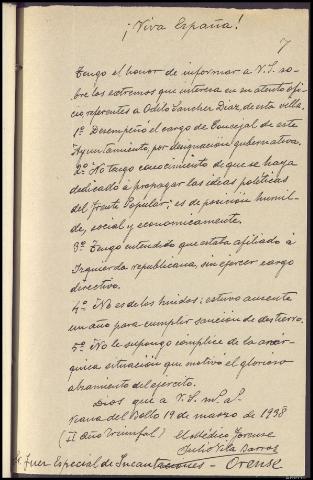 ¡Viva España!
7
Tengo el honor de informar a V.S. so-
bre los extremos que interesa en su atento ofi-
cio, referentes a Odilo Sanchez Diaz, de esta villa.
1º Desempeñó el cargo de Concejal de este
Ayuntamiento, por designación gubernativa.
2º No tengo conocimiento de que se haya
dedicado á propagar las ideas politicas
del Frente Popular; es de posición humil-
de, social y economicamente.
3º Tengo entendido que estaba afiliado á
Izquierda republicana, sin ejercer cargo
directivo.
4º No es de los huidos; estuvo ausente
un año para cumplir sanción de destierro.
5º No le supongo cómplice de la anár-
quica situación que motivó el glorioso
alzamiento del ejercito.
Dios gue a V.S. m.s a.s
Viana del Bollo 19 de marzo de 1938
(II Año Triunfal) El Médico Forense
Julio Vila Barros
Sr. Juez Especial de Incautaciones - Orense